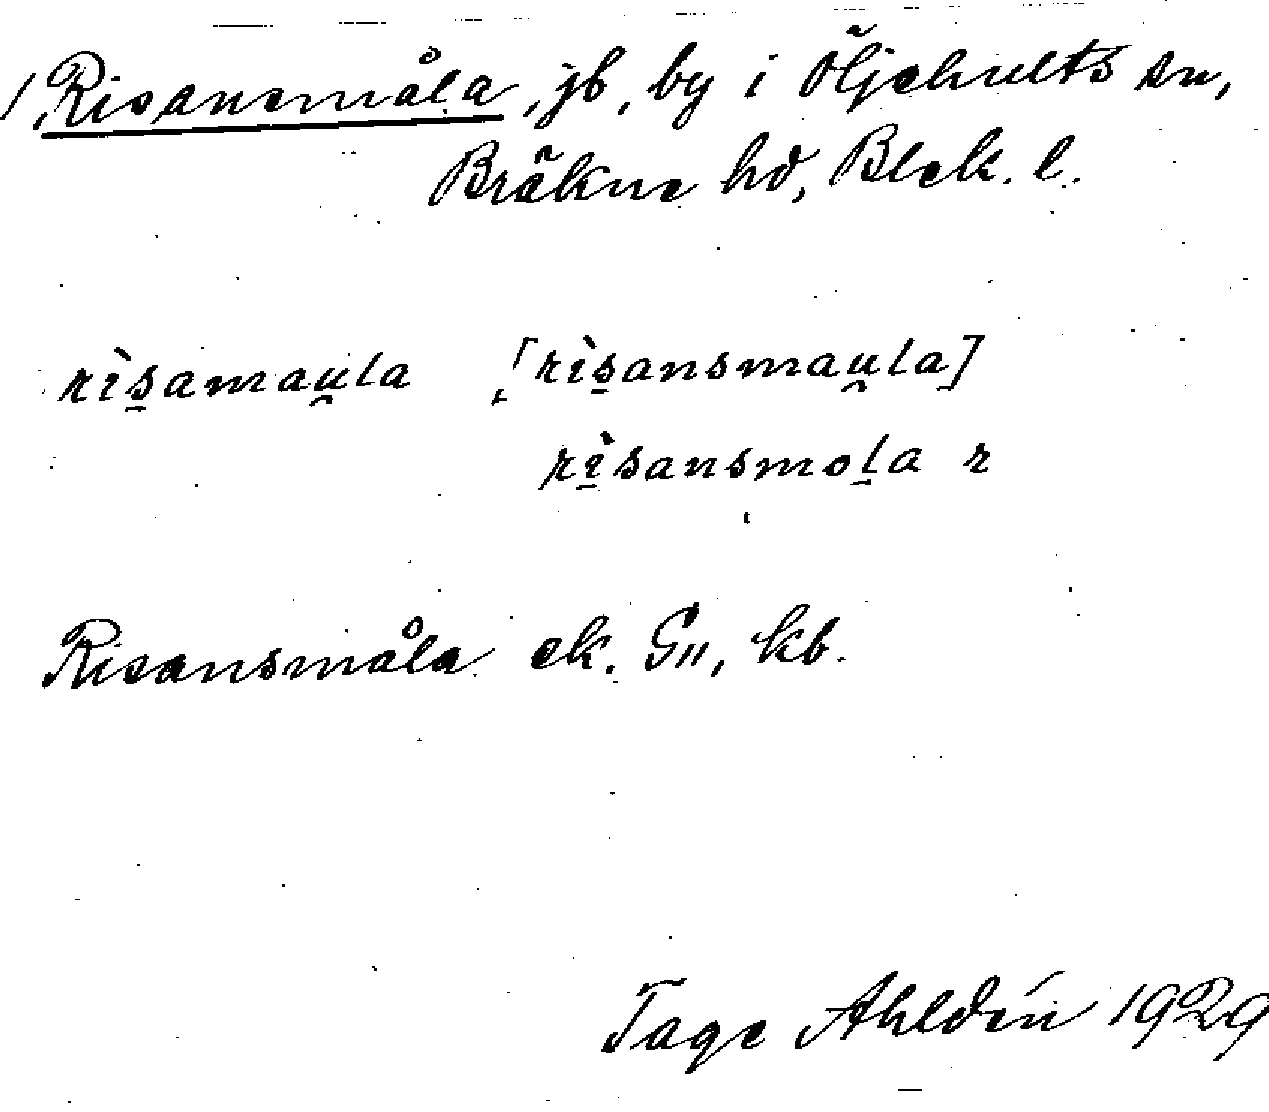 1, Risansmåla, jb, by i Öljehults sn,
Bräkne hd, Blek. l.
rìs̱amau̯la [rìs̱ansmau̯la]
rì̱sansmoḻa r
Risansmåla ek. G11, kb.
Tage Ahldén 1929